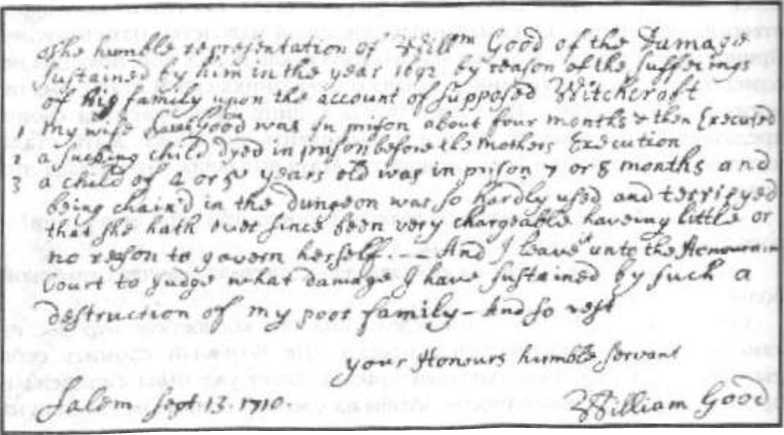 The humble representation of Will^m Good of the Damage
sustained by him in the year 1692 by reason of the sufferings
of his family upon the account of supposed Witchcraft
1 My wife Sarah Good was In prison about four months & then Executed
2 a sucking child dyed in prison before the Mothers Execution
3 a child of 4 or 5 years old was in prison 7 or 8 months and
being chain'd in the dungeon was so hardly used and terrifyed
that she hath ever since been very chargeable haveing little or
no reason to govern herself. -- And I leave unto the Honourable
Court to Judge what damage I have sustained by such a
destruction of my poor family - And so rest
your Honours humble servant
Salem Sept 13. 1710 William Good